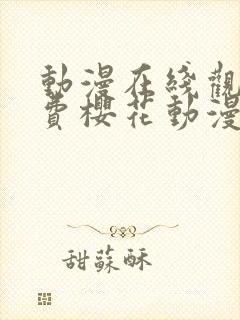 動漫在綫觀
費櫻花動漫
甜蘇酥